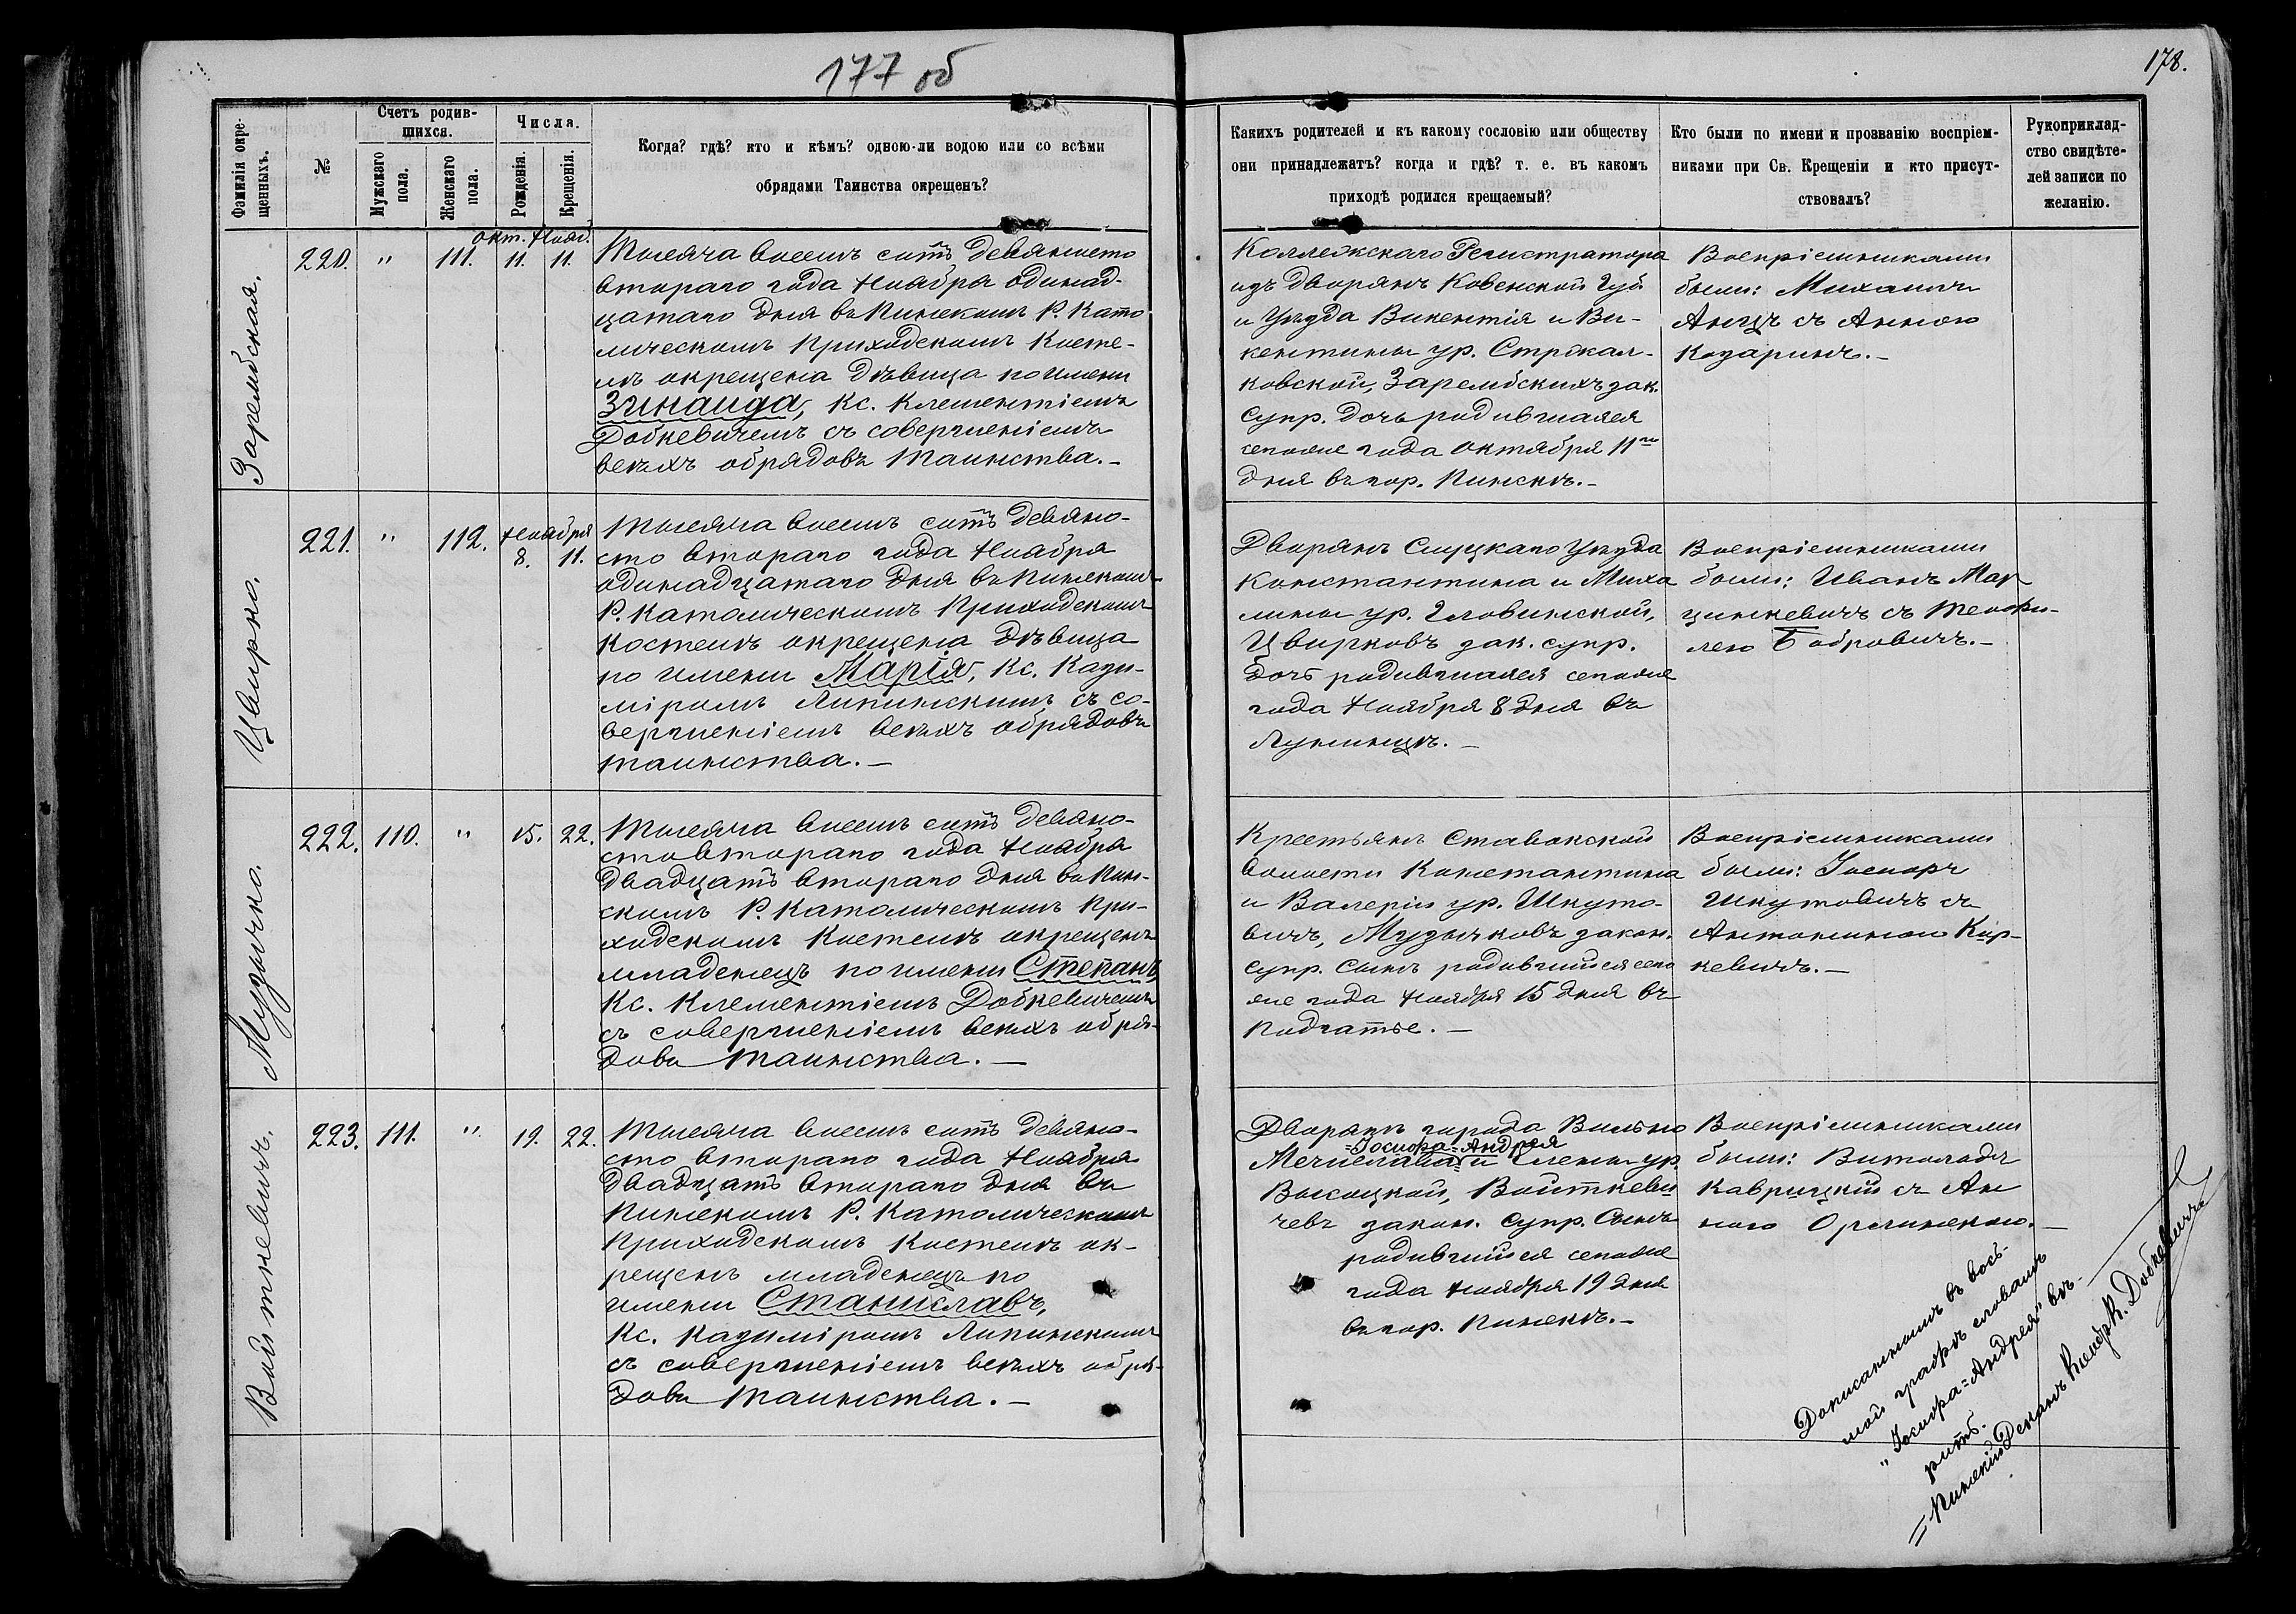 177 об
178.
Фамилія окре-
щенныхъ.
№
Счетъ родив-
шихся.
Мужскаго
пола.
Женскаго
пола.
Числа.
Рожденія.
Крещенія.
Когда? гдѣ? кто и кѣмъ? одною-ли водою или со всѣми
обрядами Таинства окрещенъ?
Какихъ родителей и къ какому сословію или обществу
они принадлежатъ? когда и гдѣ? т. е. въ какомъ
приходѣ родился крещаемый?
Кто были по имени и прозванію воспріем-
никами при Св. Крещеніи и кто присут-
ствовалъ?
Рукоприклад-
ство свидѣте-
лей записи по
желанію.
Зарембская.
220. " 111. окт. 11. Нояб. 11.
Тысяча восемь сотъ девяносто
втораго года Ноября одинад-
цатаго дня въ Пинскомъ Р. Като
лическомъ Приходскомъ Косте-
лѣ окрещена дѣвица по имени
Зинаида, Кс. Клементіемъ
Добкевичемъ съ совершеніемъ
всѣхъ обрядовъ Таинства.-
Коллежскаго Регистратора
изъ дворянъ Ковенской Губ.
и Уѣзда Викентія и Ви-
кентины ур. Стрѣкал-
ковской, Зарембскихъ зак.
супр. дочь родившаяся
сегоже года Октября 11го
дня въ гор. Пинскѣ.-
Воспріемниками
были: Михаилъ
Анцъ съ Анною
Козаринъ.-
Цвирко.
221. " 112. Ноября 8. 11.
Тысяча восемь сотъ девяно-
сто втораго года Ноября
одинадцатаго дня въ Пинскомъ
Р. Католическомъ Приходскомъ
костелѣ окрещена дѣвица
по имени Марія, Кс. Кази-
міромъ Липинскимъ съ со-
вершеніемъ всѣхъ обрядовъ
таинства.-
Дворянъ Слуцкаго Уѣзда
Константина и Миха
лины ур. Гловинской,
Цвирковъ зак. супр.
дочь родившаяся сегоже
года Ноября 8 дня въ
Лунинцѣ.-
Воспріемниками
были: Иванъ Мар
цинкевичъ съ Теофи-
лею Бобровичъ.-
Музычко.
222. 110. " 15. 22.
Тысяча восемь сотъ девяно-
сто втораго года Ноября
двадцать втораго дня въ Пин-
скомъ Р. Католическомъ При-
ходскомъ Костелѣ окрещенъ
младенецъ по имени Степанъ
Кс. Клементіемъ Добкевичемъ
съ совершеніемъ всѣхъ обря-
довъ Таинства.-
Крестьянъ Ставокской
волости Константина
и Валеріи ур. Шкуто-
вичъ, Музычковъ закон.
супр. сынъ родившійся сего
же года Ноября 15 дня въ
Подгатье.-
Воспріемниками
были: Іосифъ
Шкутовичъ съ
Антониною Кир-
кевичъ.-
Войткевичъ.
223. 111. " 19. 22.
Тысяча восемь сотъ девяно-
сто втораго года Ноября
двадцать втораго дня въ
Пинскомъ Р. Католическомъ
Приходскомъ Костелѣ ок-
рещенъ младенецъ по
имени Станиславъ,
Кс. Казиміромъ Липинскимъ
съ совершеніемъ всѣхъ обря-
довъ Таинства.-
Дворянъ города Вильно
=Іосифа=Андрея
Мечислава и Елены ур.
Высоцкой, Войткеви
чевъ закон. супр. Сынъ
родившійся сегоже
года Ноября 19 дня
въ гор. Пинскѣ.-
Воспріемниками
были: Витольдъ
Кавецкій съ Ан
ною Оргинскою.-
Дописанномъ въ вось-
мой графѣ словамъ
"Іосифа=Андрея" вѣ-
рить.
=Пинскій Деканъ Ксендзъ К. Добкевичъ